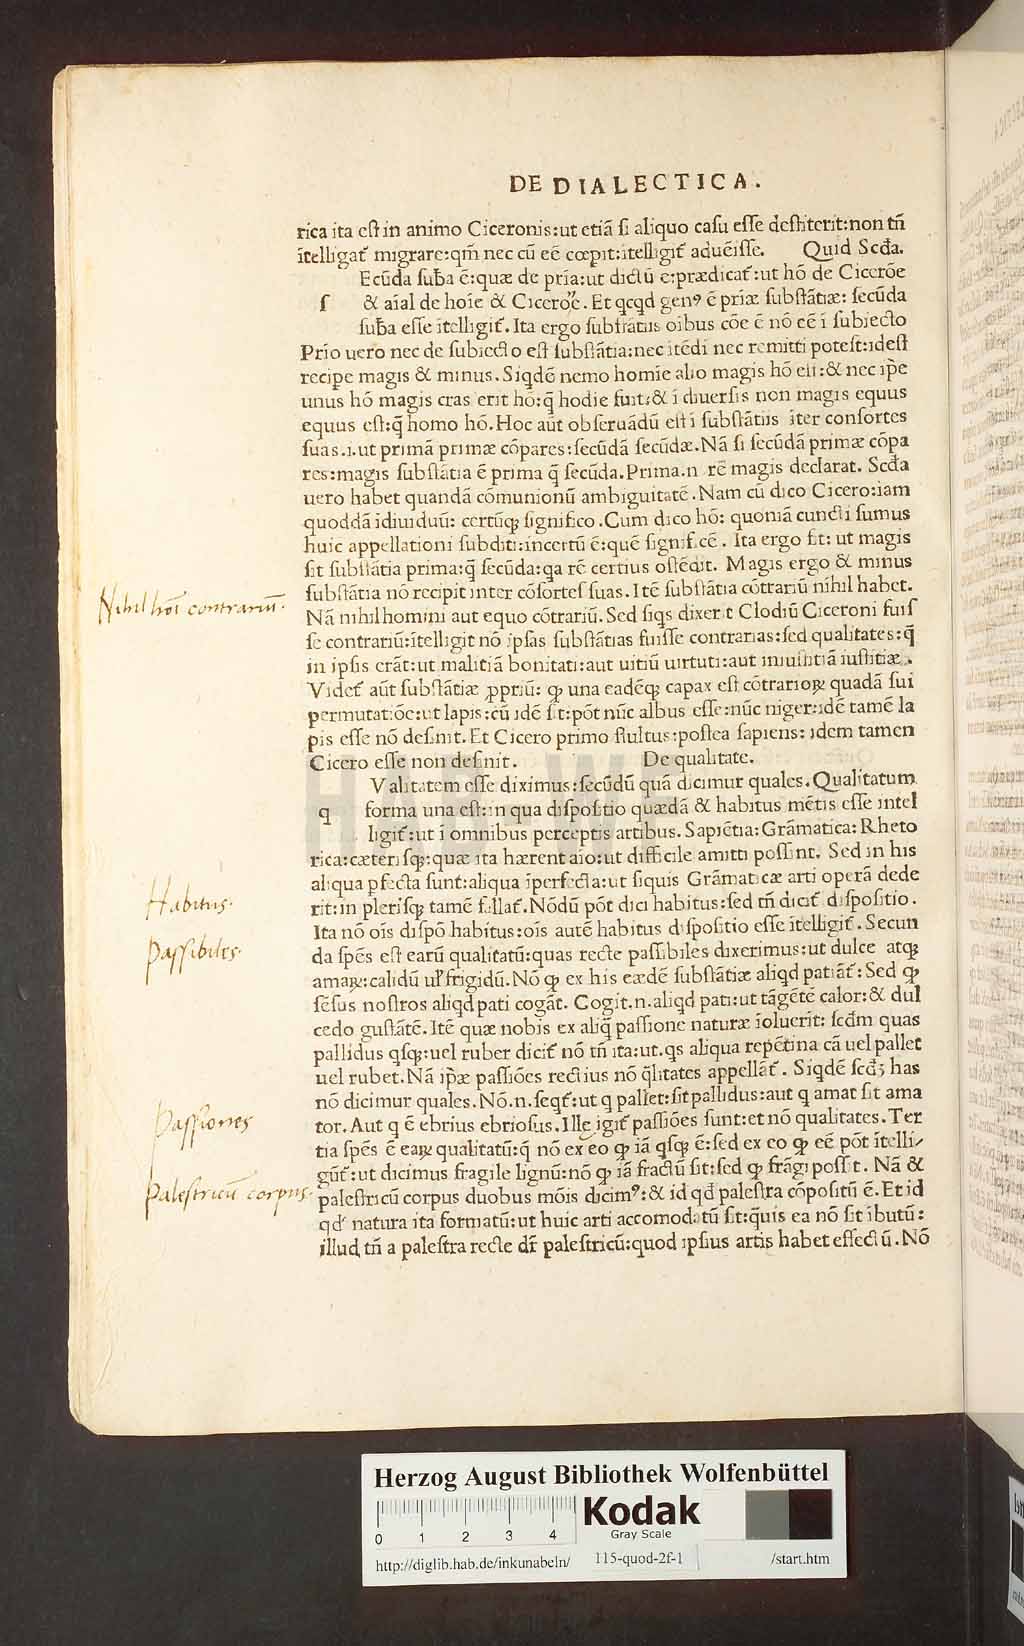 DE DIALECTICA.
rica ita est in animo Ciceronis:ut etiã si aliquo casu esse destiterit:non tñ
ītelligat᷑ migrare:qm̃ nec cũ eẽ cœpit:ītelligit᷑ aduẽisse. Quid Scđa.
Ecũda sub̃a ẽ:quæ de prīa:ut dictũ ẽ:prædicat᷑:ut hõ de Cicerõe
s & aīal de hoīe & Cicerõe. Et qcqd genꝰ ẽ priæ substãtiæ: secũda
sub̃a esse ītelligit᷑. Ita ergo substãtiis oībus cõe ẽ nõ eẽ ī subiecto
Prīo uero nec de subiecto est substãtia:nec itẽdi nec remitti potest:idest
recipe magis & minus. Siqdẽ nemo homīe alio magis hõ est:& nec ip̃e
unus hõ magis cras erit hõ:q̃ hodie fuit:& ī diuersis non magis equus
equus est:q̃ homo hõ. Hoc aũt obseruãdũ est ī substãtiis īter consortes
suas.i.ut primã primæ cõpares:secũdã secũdæ. Nã si secũdã primæ cõpa
res:magis substãtia ẽ prima q̃ secũda. Prima.n rẽ magis declarat. Scđa
uero habet quandã cõmunionũ ambiguitatẽ. Nam cũ dico Cicero:iam
quoddã idiuiduũ: certũqꝫ significo. Cum dico hõ: quoniã cuncti sumus
huic appellationi subditi:incertũ ẽ:quẽ significẽ. Ita ergo fit: ut magis
sit substãtia prima:q̃ secũda:qa rẽ certius ostẽdit. Magis ergo & minus
substãtia nõ recipit inter cõsortes suas. Itẽ substãtia cõtrariũ nihil habet.
Nã nihil homini aut equo cõtrariũ. Sed siqs dixerit Clodiũ Ciceroni fuis
se contrariũ:ītelligit nõ ipsas substãtias fuisse contrarias:sed qualitates:q̃
in ipsis erãt:ut malitiã bonitati:aut uitiũ uirtuti:aut iniustitiã iustitiæ.
Videt᷑ aũt substãtiæ ꝓpriũ: ꝙ una eadẽqꝫ capax est cõtrarioꝝ quadã sui
permutatiõe:ut lapis:cũ idẽ sit:põt nũc albus esse:nũc niger:idẽ tamẽ la
pis esse nõ desinit. Et Cicero primo stultus:postea sapiens: idem tamen
Cicero esse non desinit. De qualitate.
Valitatem esse diximus:secũdũ quã dicimur quales. Qualitatum
q forma una est:in qua dispositio quædã & habitus mẽtis esse intel
ligit᷑:ut ī omnibus perceptis artibus. Sapiẽtia:Grãmatica: Rheto
rica:cæterisqꝫ:quæ ita hærent aīo:ut difficile amitti possint. Sed in his
aliqua pfecta sunt:aliqua īperfecta:ut siquis Grãmaticæ arti operã dede
rit:in plerisqꝫ tamẽ fallat᷑. Nõdũ põt dici habitus:sed tñ dicit᷑ dispositio.
Ita nõ oīs dispõ habitus:oīs autẽ habitus dispositio esse ītelligit᷑. Secun
da spẽs est earũ qualitatũ:quas recte passibiles dixerimus:ut dulce atqꝫ
amaꝝ:calidũ ul̃ frigidũ. Nõ ꝙ ex his eædẽ substãtiæ aliqd patiãt᷑: Sed ꝙ
sẽsus nostros aliqd pati cogãt. Cogit.n.aliqd pati:ut tãgẽtẽ calor:& dul
cedo gustãtẽ. Itẽ quæ nobis ex aliq̃ passione naturæ īoluerit: scđm quas
pallidus qsqꝫ:uel ruber dicit᷑ nõ tñ ita:ut.qs aliqua repẽtina cã uel pallet
uel rubet. Nã ip̃æ passiões rectius nõ q̃litates appellãt᷑. Siqdẽ scđꝫ has
nõ dicimur quales. Nõ.n.seqt᷑:ut q pallet:sit pallidus:aut q amat sit ama
tor. Aut q ẽ ebrius ebriosus. Ille igit᷑ passiões sunt:et nõ qualitates. Ter
tia spẽs ẽ eaꝝ qualitatũ:q̃ nõ ex eo ꝙ iã qsqꝫ ẽ:sed ex eo ꝙ eẽ põt ītelli-
gũt᷑:ut dicimus fragile lignũ:nõ ꝙ iã fractũ sit:sed ꝙ frãgi possit. Nã &
palestricũ corpus duobus mõis dicimꝰ:& id qđ palestra cõpositũ ẽ. Et id
qđ natura ita formatũ:ut huic arti accomodatũ sit:q̃uis ea nõ sit ībutũ:
illud tñ a palestra recte dr̃ palestricũ:quod ipsius artis habet effectũ. Nõ
Nihil hoī contrariũ.
Habitus.
Passibiles.
Passiones
Palestricũ corpus.
HAB-WF
Herzog August Bibliothek Wolfenbüttel
0 1 2 3 4
Kodak
Gray Scale
http://diglib.hab.de/inkunabeln/ 115-quod-2f-1 /start.htm